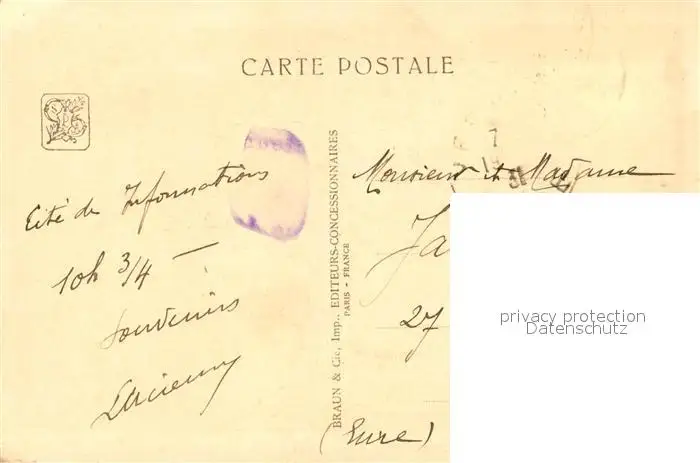 CARTE POSTALE
Cité des Informations
10h 3/4 —
Souvenirs
BRAUN & Cie, Imp., EDITEURS-CONCESSIONNAIRES
PARIS - FRANCE
7
31
Monsieur et Madame
Ja
27
(Eure)
privacy protection
Datenschutz